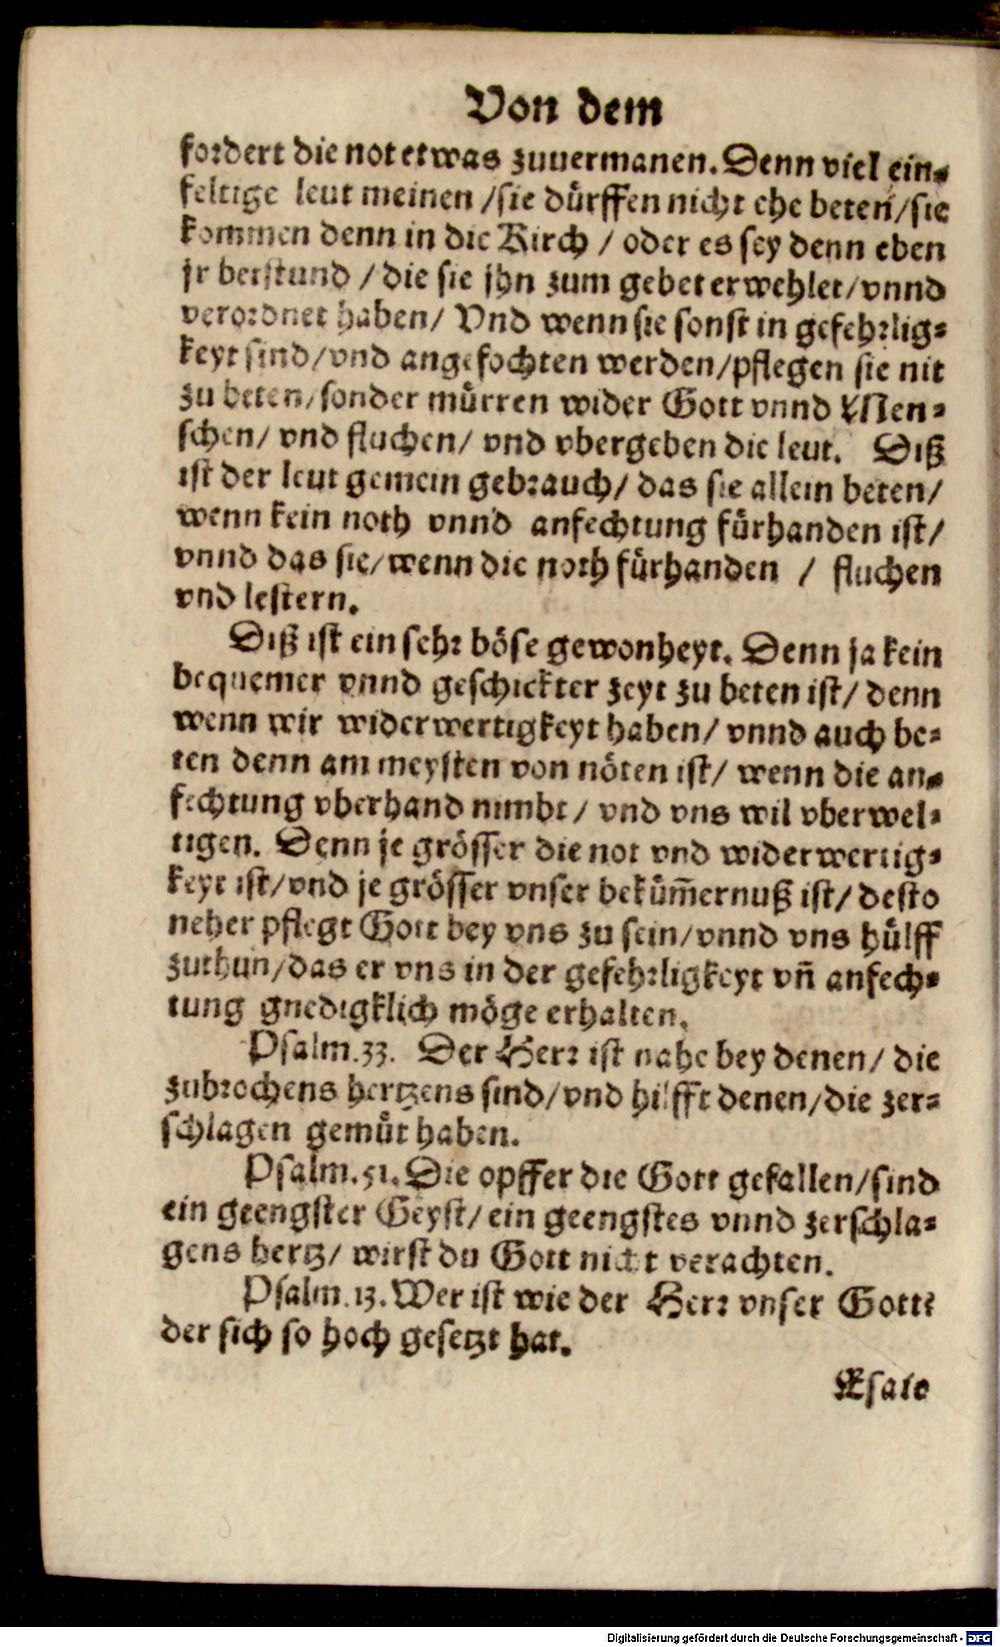 Von dem
fordert die not etwas zuuermanen. Denn viel ein⸗
feltige leut meinen /sie dürffen nicht ehe beten/sie
kommen denn in die Kirch / oder es sey denn eben
jr betstund / die sie jhn zum gebet erwehlet/vnnd
verordnet haben/ Vnd wenn sie sonst in gefehrlig⸗
keyt sind/vnd angefochten werden/pflegen sie nit
zu beten/sonder mürren wider Gott vnnd Men⸗
schen/ vnd fluchen/ vnd vbergeben die leut. Diß
ist der leut gemein gebrauch/ das sie allein beten/
wenn kein noth vnnd anfechtung fürhanden ist/
vnnd das sie/wenn die noth fürhanden / fluchen
vnd lestern.
Diß ist ein sehr böse gewonheyt. Denn ja kein
bequemer vnnd geschickter zeyt zu beten ist/ denn
wenn wir widerwertigkeyt haben/ vnnd auch be⸗
ten denn am meysten von nöten ist/ wenn die an⸗
fechtung vberhand nimbt/ vnd vns wil vberwel⸗
tigen. Denn je grösser die not vnd widerwertig⸗
keyt ist/vnd je grösser vnser beküm̃ernuß ist/ desto
neher pflegt Gott bey vns zu sein/vnnd vns hülff
zuthun/das er vns in der gefehrligkeyt vñ anfech⸗
tung gnedigklich möge erhalten.
Psalm.33. Der Herr ist nahe bey denen/ die
zubrochens hertzens sind/vnd hilfft denen/die zer⸗
schlagen gemüt haben.
Psalm.51. Die opffer die Gott gefallen/sind
ein geengster Geyst/ ein geengstes vnnd zerschla⸗
gens hertz/ wirst du Gott nicht verachten.
Psalm.13. Wer ist wie der Herr vnser Gott?
der sich so hoch gesetzt hat.
Esaie
Digitalisierung gefördert durch die Deutsche Forschungsgemeinschaft - DFG